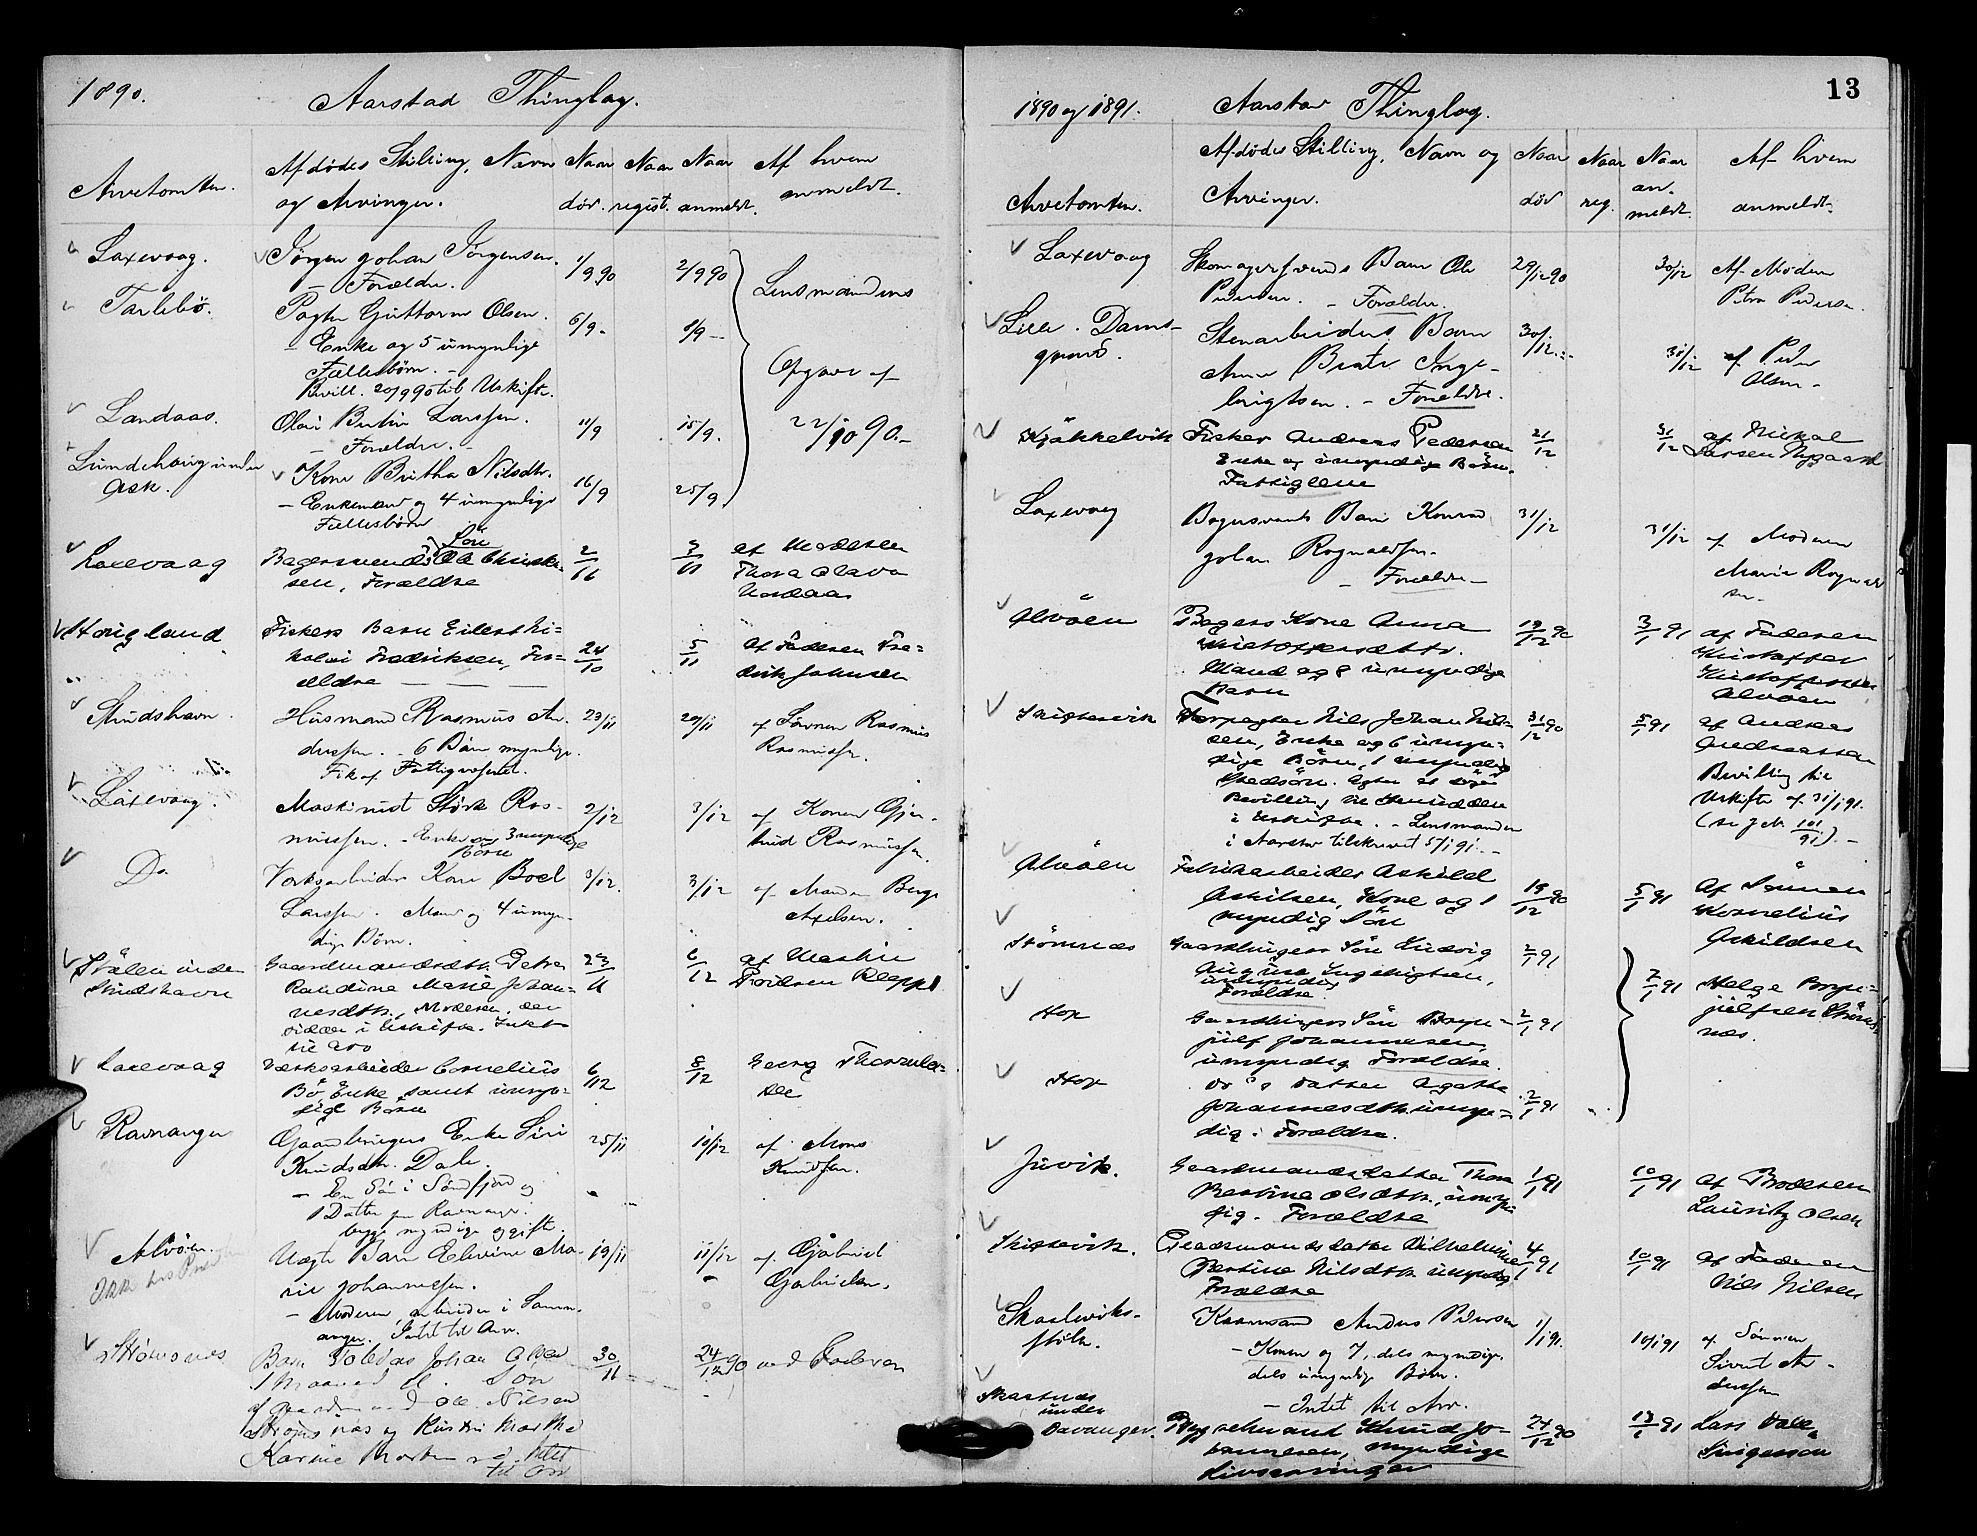 1890.
Aarstad Thinglag.
Arvetomten.
Afdödes Stilling, Navn og Arvinger.
Naar död.
Naar regist.
Naar anmeldt.
Af hvem anmeldt.
Laxevaag.
Jörgen Johan Jörgensen.
– Forældre.
1/9 90
2/9 90
Lensmandens
Opgave af
22/10 90.–
Tarlebö.
Pagter Guttorm Olsen.
– Enke og 5 umyndige
Fællesbörn. –
Bevill. 20/9 90 til Uskifte.
6/9 –
8/9 –
Landaas.
Olai Bertin Larssen.
– Forældre. –
11/9
15/9.
Lundehaug under
Ask.
Kone Britha Nilsdtr.
– Enkemand og 4 umyndige
Fællesbörn
16/9
25/9
Laxevaag
Bagersvends Sön Ole Christen-
sen, Forældre
af Moderen
Thora Olava
Haugland
Fiskers Barn Eilert Ni-
kolai Fredriksen, For-
ældre
24/10
5/11
af Faderen Fre-
drik Johnsen
Skudshavn.
Husmand Rasmus An-
derssen. – 6 Börn myndige.
Fik af Fattigvæsenet.
23/11
29/11
af Sönnen Rasmus
Rasmussen.
Laxevaag.
Maskinist Störk Ras-
mussen. – Enke og 3 umyndige
Börn
2/12
3/12
af Konen Gjer-
trud Rasmussen.
Do
Værksarbeider Kone Boel
Larssen. Mand og 4 umyn-
dige Börn.
3/12.
3/12
af Manden Berge
Axelsen.
Stölen under
Skudshavn
Gaardmandsdtr. Petra
Randine Marie Johan-
nesdtr., Moderen, der
sidder i Uskifte. Intet
til Arv
23/11
6/12
af Martin
Troilsen Kleppe
Laxevaag
Værksarbeider Cornelius
Bö, Enke samt umyn-
dige Börn
6/12
8/12
Georg
Ravnanger
Gaardbrugers Enke Siri
Knudsdtr. Dale.
– En Sön i Söndfjord og
1 Datter paa Ravnanger.
begge myndige og gifte.
25/11
10/12
af Mons
Knudsen.
Alvöen.
Ugifte Barn Elevine Ma-
rie Johannessen.
– Moderen, arbeider i Samn-
anger. Intet til Arv.
19/11
11/12
af Gabriel
Gabrielsen.
Strömsnes
Barn Johan Olsen
1 Maaned gl. Sön
af Gaardmand Ole Nilsen
Strömsnæs og Hustru Martha
Karine Intet
til Arv
30/11
24/12 90
ved Faderen
13
1890 og 1891.
Aarstad Thinglag.
Arvetomten.
Afdödes Stilling, Navn og
Arvinger.
Naar död
Naar reg.
Naar an-
meldt.
Af hvem
anmeldt.
Laxevaag
Skomagersvends Barn Ole
Pedersen. – Forældre.
29/12 90
30/12
Af Moderen
Petra Pedersen.
Lille Dams-
gaard.
Stenarbeiders Barn
Anna Beate Inge-
brigtsen. – Forældre.
30/12 –
31/12
af Peder
Olsen –
Kjökkelvik
Fisker Andreas Pedersen
Enke og umyndige Börn.
Fattiglem
21/12
31/12
af Mikal
Larsen Nygaard
Laxevaag
Bagersvends Barn Konrad
Johan Ragnvaldsen.
– Forældre –
31/12
31/12
af Moderen
Marie Ragnvald-
sen.
Alvöen
Bagers Kone Anna
Kristoffersdtr.
Mand og 8 umyndige
Barn
19/12 90
3/1 91
af Faderen
Kristoffer
Kristoffersen
Alvöen
Skiftesvik
Forpagter Nils Johan Niel-
sen, Enke og 6 umyn-
dige Börn, 1 umyndig
Stedsön. Agter at söge
Bevilling til Hensidden
i Uskifte. – Lensmanden
i Aarstad tilskrevet 5/1 91. –
31/12 90
5/1 91
af Andreas
Andreassen
Bevilling til
Uskifte af 31/1 91.
(se J. No 101/91). –
Alvöen
Fabrikarbeider Askild
Askildsen, Kone og 1
myndig Sön
19/12 90
5/1 91
Af Sönnen
Kornelius
Askildsen
Strömnæs
Gaardbrugers Sön Ludvig
August Ingebrigtsen,
umyndig
Forældre.
2/1 91
7/1 91
Helge Bryn-
julfsen Ström-
næs.
Hop
Gaardbrugers Sön Bryn-
julf Johannesen,
umyndig Forældre.
2/1 91
Hop
Do's Datter Agatha
Johannesdtr. umyn-
dig. Forældre.
2/1 91
Juvik.
Gaardmandsdatter Thora
Bertine Olsdtr., umyn-
dig. Forældre
1/1 91
10/1 91
af Broderen
Lauritz Olsen
Skiftesvik.
Gaardmandsdatter Wilhelmine
Bertine Nilsdtr. umyndig
Forældre
4/1 91
10/1 91
af Faderen
Nils Nilsen
Skaalviks-
stöle.
Kaarmand Anders Pedersen
– Konen og 7, dels myndige,
dels umyndige Börn.
– Intet til Arv.
1/1 91.
10/1 91
af Sönnen
Sivert An-
dersen
Skarsnæs
under
Davanger.
Bygselmand Knud Jo-
hannesen, myndige
Livsarvinger
24/12 90
13/1 91
Lars